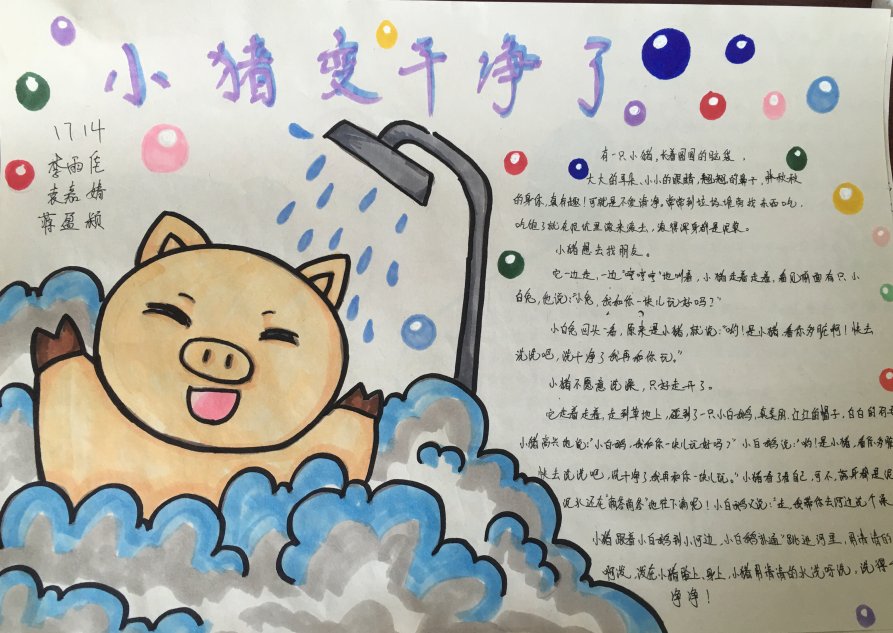 小猪变干净了
1714
李雨佳
袁嘉婧
蒋盈颖
有一只小猪，长着圆圆的脑袋，
大大的耳朵、小小的眼睛，翘翘的鼻子，胖秋秋
的身体，真有趣！可就是不爱清净。常常到垃圾堆旁找东西吃，
吃饱了就在泥坑里滚来滚去，滚得浑身都是泥浆。
小猪想去找朋友。
它一边走，一边"哼哼哼"地叫着，小猪走着走着，看见前面有只小
白兔，他说："小兔，我和你一块儿玩好吗？"
小白兔回头一看，原来是小猪，就说："哟！是小猪，看你多脏啊！快去
洗洗吧，洗干净了我再和你玩。"
小猪不愿意洗澡，只好走开了。
它走着走着，走到草地上，碰到了一只小白鹅，真美丽，红红的帽子，白白的羽毛
小猪高兴地说："小白鹅，我和你一块儿玩好吗？"小白鹅说："哟！是小猪，看你多脏
快去洗洗吧，洗干净了我再和你一块儿玩。"小猪看了看自己，可不，满身都是泥
泥水还在"滴答滴答"地往下滴呢！小白鹅又说："走，我带你去河边洗个澡
小猪跟着小白鹅到小河边，小白鹅扑通"跳进河里，用清清的
啊泼，泼在小猪脸上，身上，小猪用清清的水洗呀洗，洗得
净净！